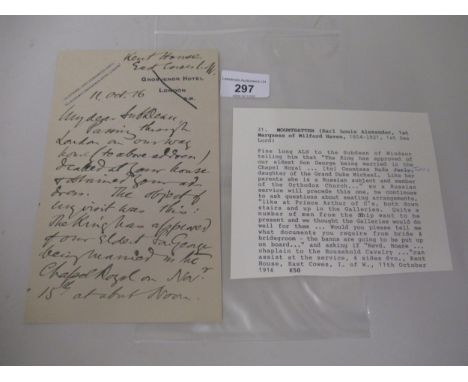 Kent House
East Cowes I.W.
GROSVENOR HOTEL
LONDON
S.W.
11 Oct. 16
My dear Subdean,
Passing through
London on our way
here (to above address)
I called at your house
& obtained your ad-
dress. The object of
my visit was this:
The King has approved
of our eldest Son George
being married in the
Chapel Royal on Novr
15th at about Noon.
297
31. MOUNTBATTEN (Earl Louis Alexander, 1st
Marquess of Milford Haven, 1854-1921, 1st Sea
Lord)
Fine long ALS to the Subdean of Windsor
telling him that "The King has approved of
our eldest Son George being married in the
Chapel Royal ... (to) Countess Nada
daughter of the Grand Duke Michael. Like her
parents she is a Russian subject and member
of the Orthodox Church..." so a Russian
service will precede this one, he continues
to ask questions about seating arrangements,
"like at Prince Arthur of C's, both down
stairs and up in the Galleries. Quite a
number of men from the Ship want to be
present and we thought the Galleries would do
well for them ... Would you please tell me
what documents you require from bride &
bridegroom - the banns are going to be put up
on board..." and asking if "Revd. Hoare ...
chaplain to the Household Cavalry ..." can
assist at the service, 4 sides 8vo., Kent
House, East Cowes, I. of W., 11th October
1916 £50